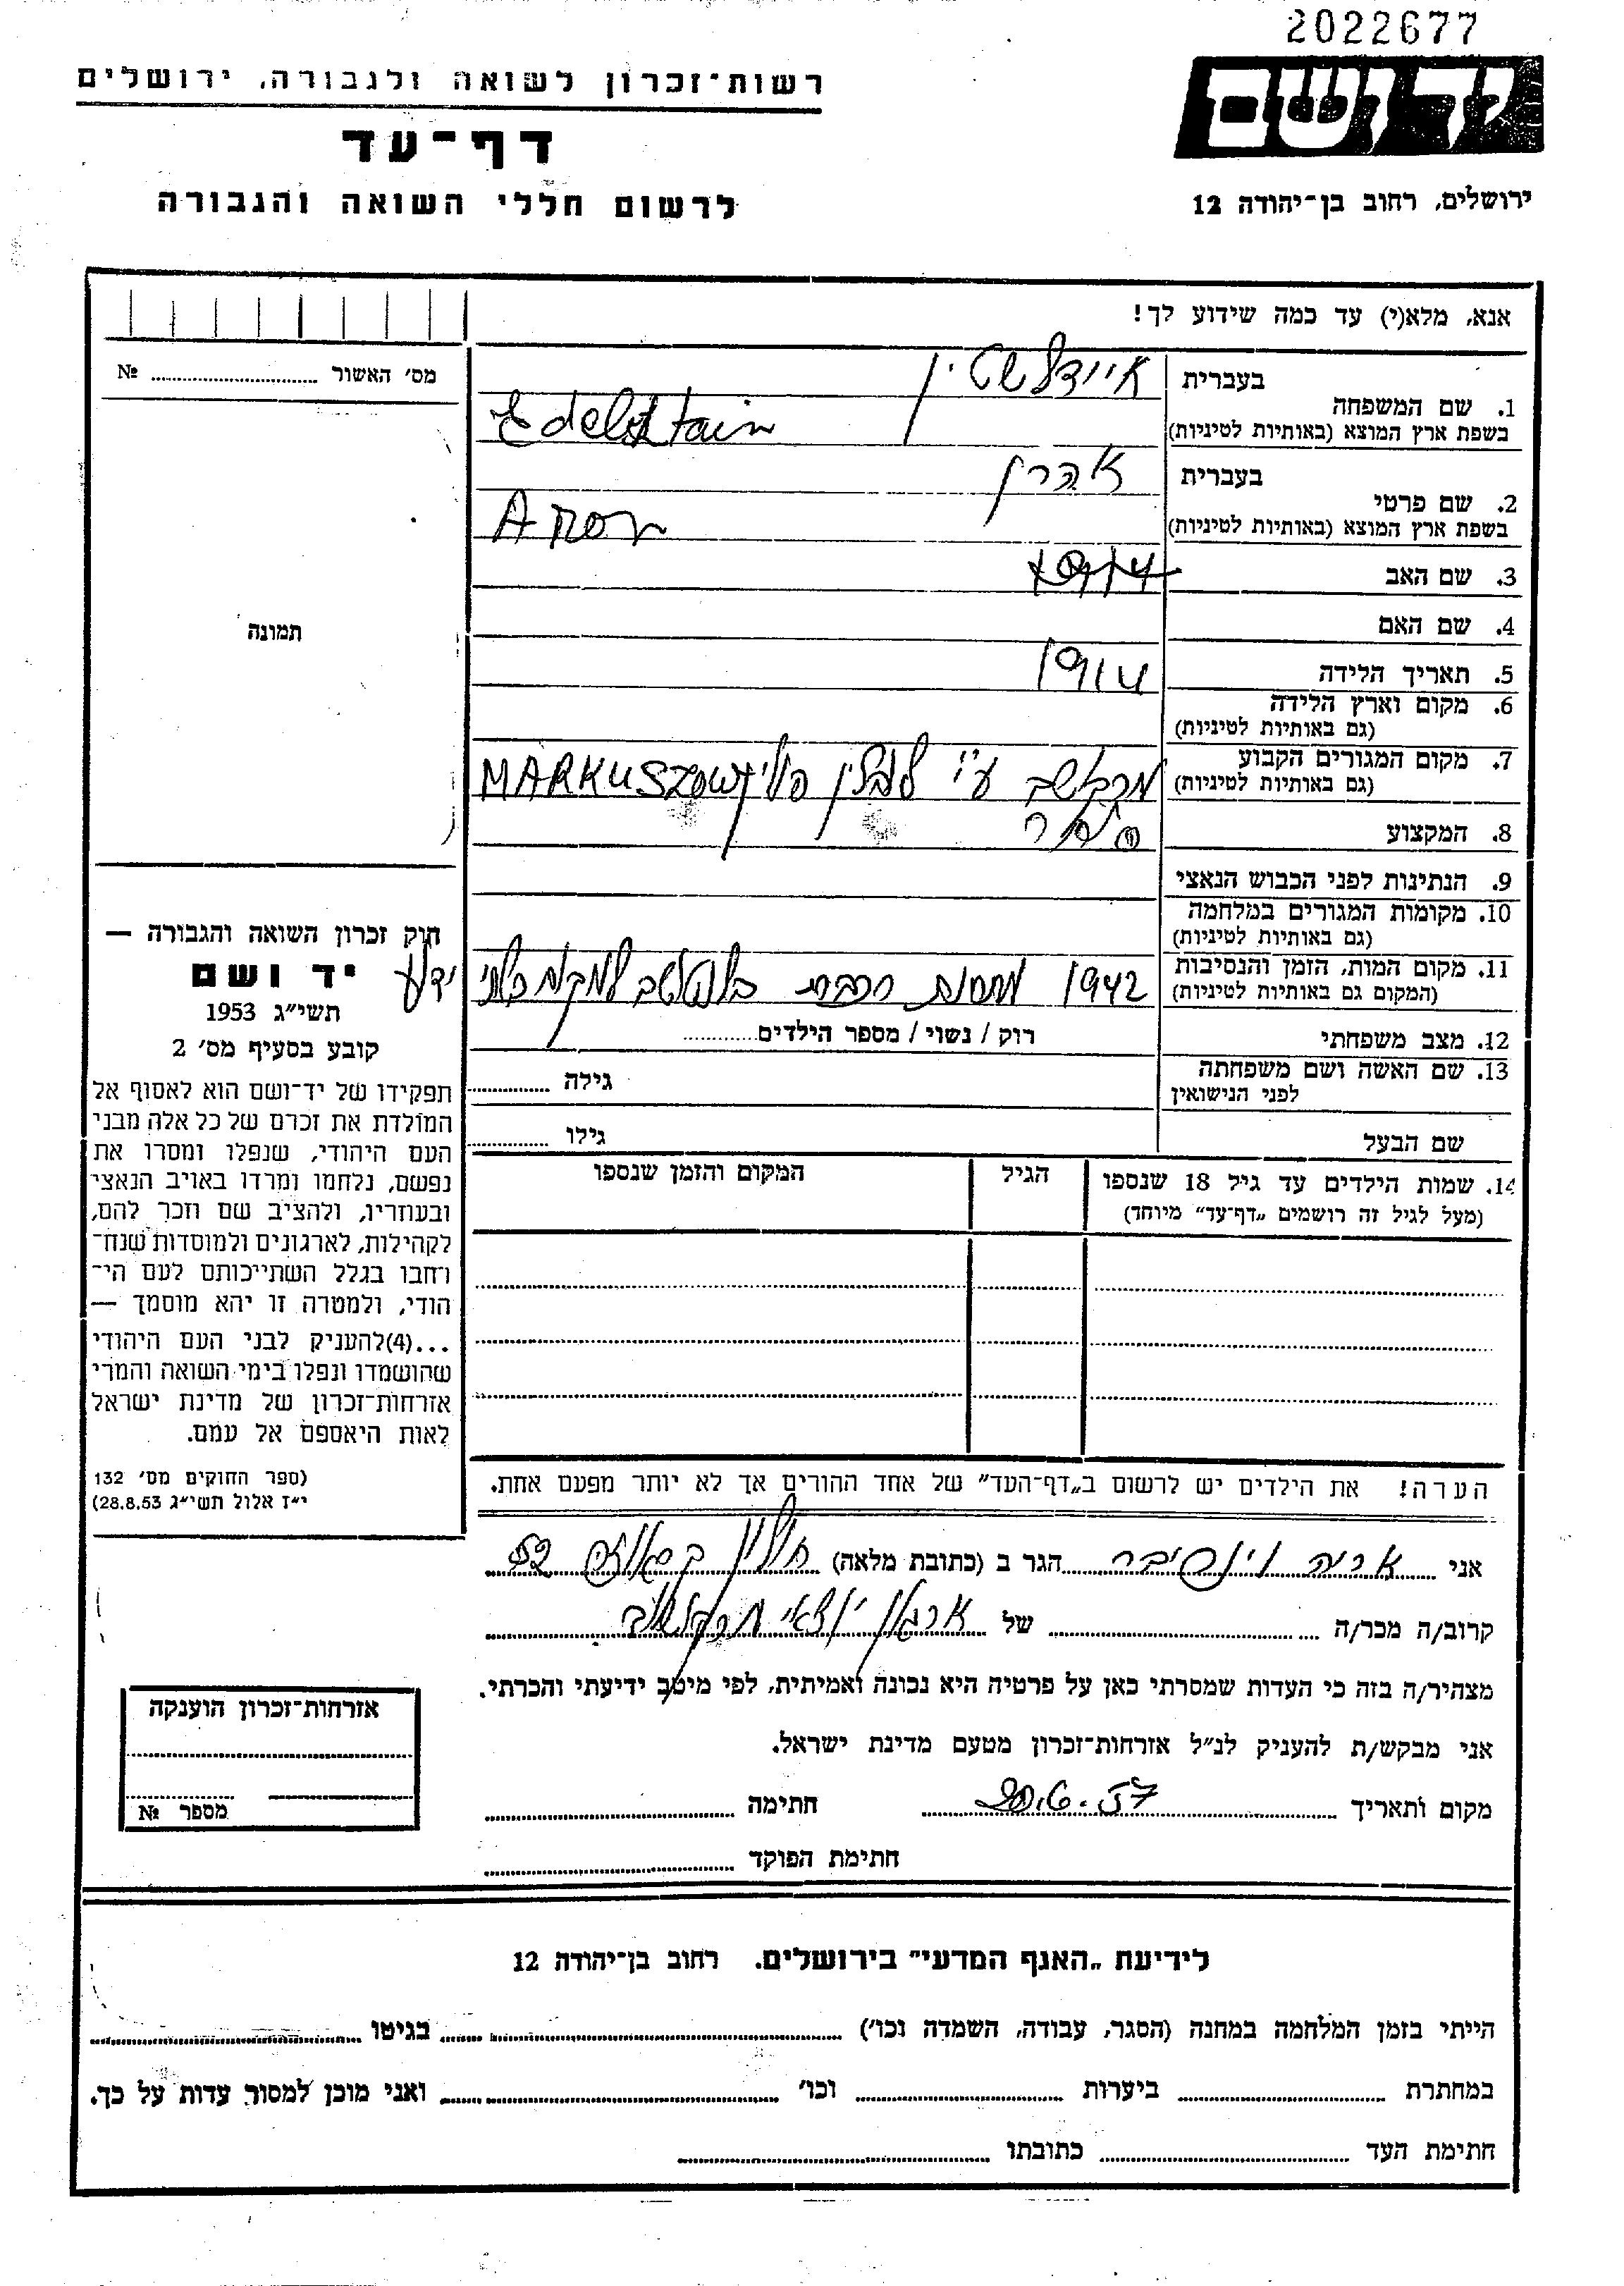 2022677
יד ושם
ירושלים, רחוב בן־יהודה 12
רשות־זכרון לשואה ולגבורה, ירושלים
דף־עד
לרשום חללי השואה והגבורה
אנא, מלא(י) עד כמה שידוע לך!
1. שם המשפחה בעברית איידלשטיין
בשפת ארץ המוצא (באותיות לטיניות) Edelshtain
2. שם פרטי בעברית אהרן
בשפת ארץ המוצא (באותיות לטיניות) Aron
3. שם האב 1914
4. שם האם
5. תאריך הלידה 1914
6. מקום וארץ הלידה
(גם באותיות לטיניות)
7. מקום המגורים הקבוע
(גם באותיות לטיניות) ע"י לובלין פולין MARKUSZOW
8. המקצוע סוחר
9. הנתינות לפני הכבוש הנאצי
10. מקומות המגורים במלחמה
(גם באותיות לטיניות)
11. מקום המות, הזמן והנסיבות
(המקום גם באותיות לטיניות) 1942 למקום בלתי ידוע
12. מצב משפחתי רוק / נשוי / מספר הילדים
13. שם האשה ושם משפחתה גילה
לפני הנישואין
שם הבעל גילו
14. שמות הילדים עד גיל 18 שנספו הגיל המקום והזמן שנספו
(מעל לגיל זה רושמים „דף־עד" מיוחד)
הערה! את הילדים יש לרשום ב„דף־העד" של אחד ההורים אך לא יותר מפעם אחת.
מס' האשור №
תמונה
חוק זכרון השואה והגבורה —
יד ושם
תשי"ג 1953
קובע בסעיף מס' 2
תפקידו של יד־ושם הוא לאסוף אל
המולדת את זכרם של כל אלה מבני
העם היהודי, שנפלו ומסרו את
נפשם, נלחמו ומרדו באויב הנאצי
ובעוזריו, ולהציב שם וזכר להם,
לקהילות, לארגונים ולמוסדות שנח־
רחבו בגלל השתייכותם לעם הי־
הודי, ולמטרה זו יהא מוסמך —
...(4)להעניק לבני העם היהודי
שהושמדו ונפלו בימי השואה והמרי
אזרחות־זכרון של מדינת ישראל
לאות היאספם אל עמם.
(ספר החוקים מס' 132
י"ז אלול תשי"ג 28.8.53)
אני אריה וינריבר הגר ב (כתובת מלאה) חולון 52
קרוב/ה מכר/ה של ארגון יוצאי מרקושוב
מצהיר/ה בזה כי העדות שמסרתי כאן על פרטיה היא נכונה ואמיתית, לפי מיטב ידיעתי והכרתי.
אני מבקש/ת להעניק לנ"ל אזרחות־זכרון מטעם מדינת ישראל.
מקום ותאריך 20.6.57 חתימה
חתימת הפוקד
אזרחות־זכרון הוענקה
מספר №
לידיעת „האנף המדעי" בירושלים. רחוב בן־יהודה 12
הייתי בזמן המלחמה במחנה (הסגר, עבודה, השמדה וכו') בגיטו
במחתרת ביערות וכו' ואני מוכן למסור עדות על כך.
חתימת העד כתובתו